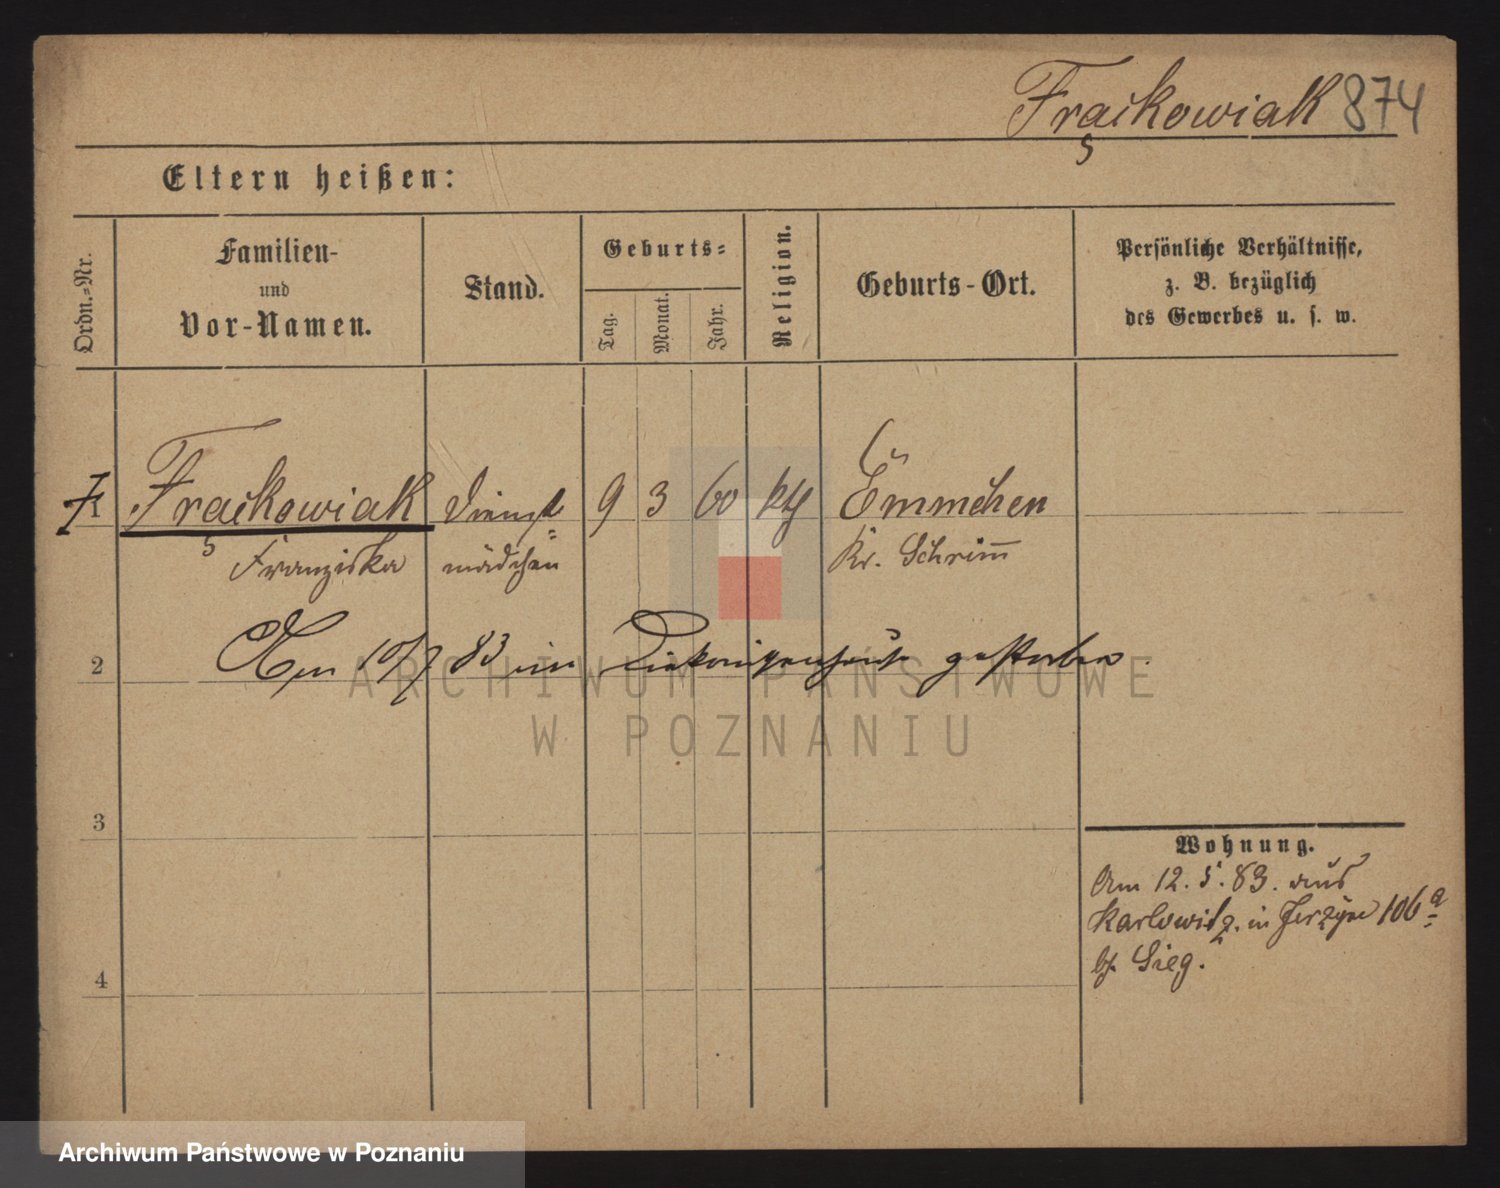 Frąckowiak 874
Eltern heißen:
Ordn.-Nr.
Familien-
und
Vor-Namen.
Stand.
Geburts-
Tag.
Monat.
Jahr.
Religion.
Geburts-Ort.
Persönliche Verhältnisse,
z. B. bezüglich
des Gewerbes u. s. w.
1 Frąckowiak Dienst= 9 3 60 kth Emmchen
Franziska mädchen Kr. Schrim̄
2 Am 10/7 83 im Diakonissenhause gestorben.
3
4
Wohnung.
Am 12. 5. 83. aus
Karlowitz. in Jerzyce 106a
b/. Sieg.
ARCHIWUM PAŃSTWOWE
W POZNANIU
Archiwum Państwowe w Poznaniu